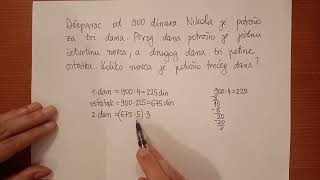 Džeparac od 900 dinara Nikola je potrošio
za tri dana. Prvog dana potrošio je jednu
četvrtinu novca, a drugog dana tri petine
ostatka. Koliko novca je potrošio trećeg dana?
1. dan = 900:4=225 din
ostatak = 900-225=675 din
2. dan = (675:5)·3
900:4=225
-8
10
-8
20
-20